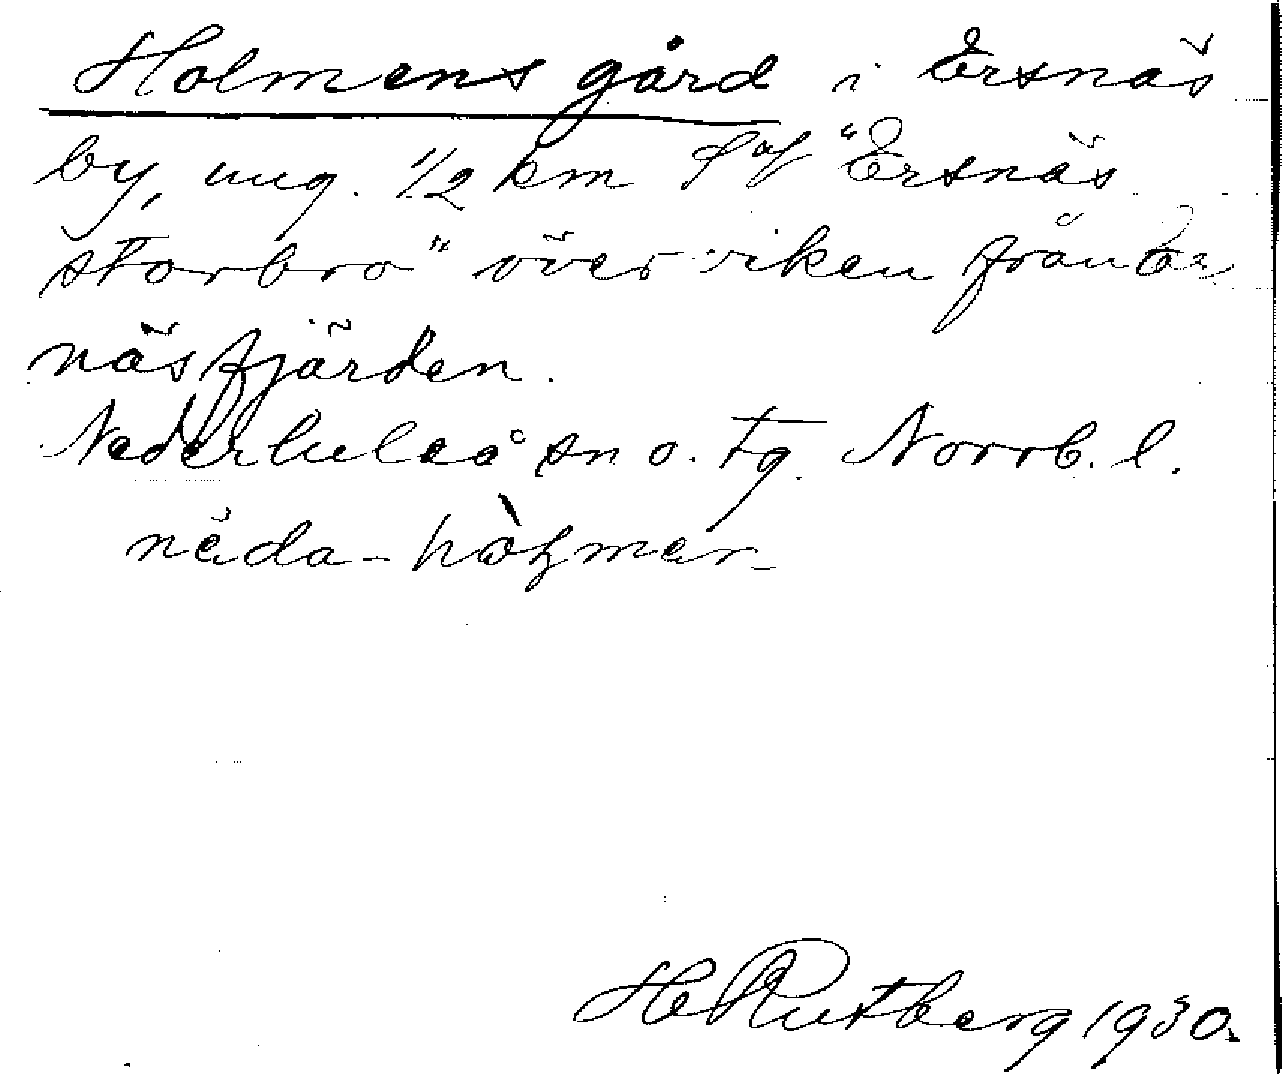 Holmens gård i Ersnäs
by, ung. 1/2 km S of "Ersnäs
storbro" över viken från Er
näsfjärden.
Nederluleå sn o. tg. Norrb. l.
näda-hòlmar
H Rutberg 1930.